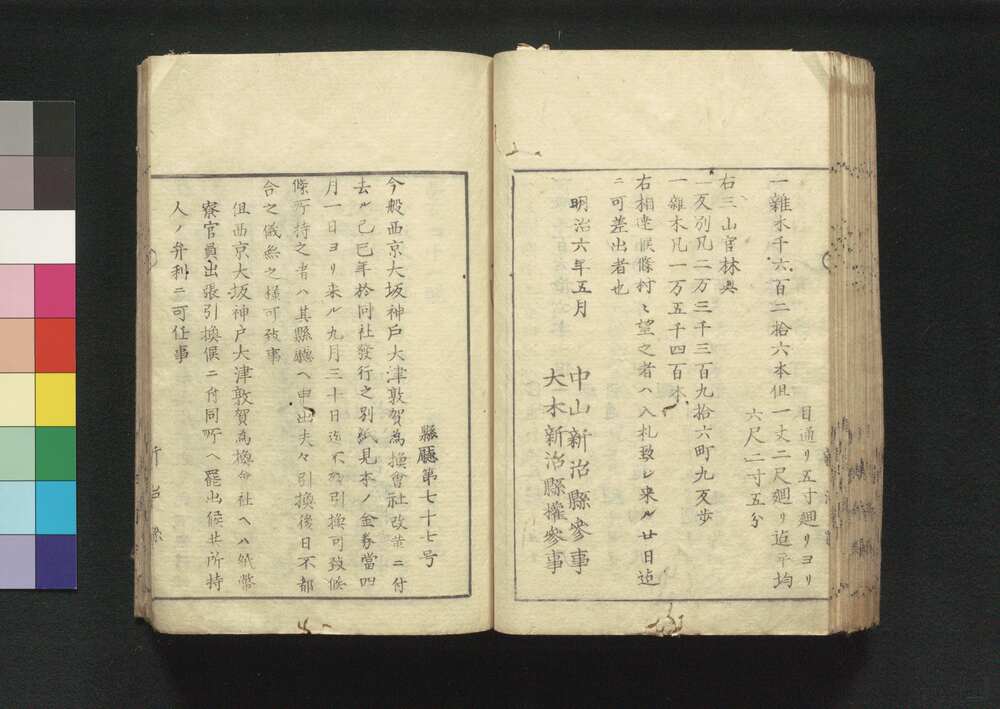 一雜木千六百二拾六本但
目通リ五寸廻リヨリ
一丈二尺廻リ迠平均
六尺二寸五分
右三山官林共
一反別凡二万三千三百九拾六町九反歩
一雜木凡一万五千四百本
右相達候條村々望之者ハ入札致シ来ル廿日迠
ニ可差出者也
明治六年五月
中山新治縣參事
大木新治縣權參事
縣廳第七十七号
今般西京大坂神戸大津敦賀為換會社改業ニ付
去ル己巳年於同社發行之別紙見本ノ金券當四
月一日ヨリ来ル九月三十日迠不殘引換可致候
條所持之者ハ其縣廳ヘ申出夫々引換後日不都
合之儀無之様可致事
但西京大坂神戸大津敦賀為換會社ヘハ紙幣
寮官員出張引換候ニ付同所ヘ罷出候共所持
人ノ弁利ニ可任事